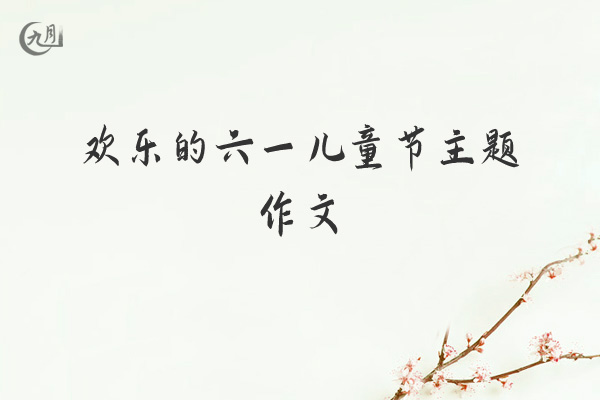 九月
欢乐的六一儿童节主题
作文